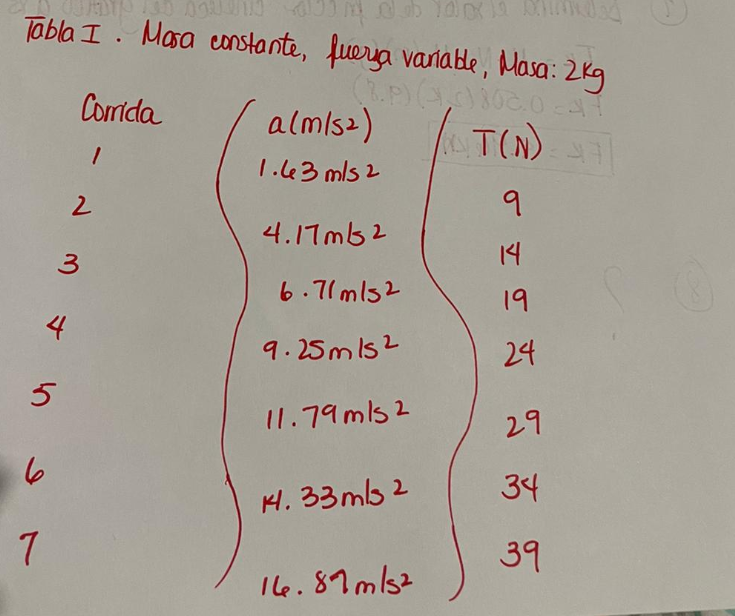 Tabla I. Masa constante, fuerza variable, Masa: 2Kg
Corrida a(m/s2) T(N)
1 1.63 m/s2 9
2 4.17 m/s2 14
3 6.71 m/s2 19
4 9.25 m/s2 24
5 11.79 m/s2 29
6 14.33 m/s2 34
7 16.87 m/s2 39